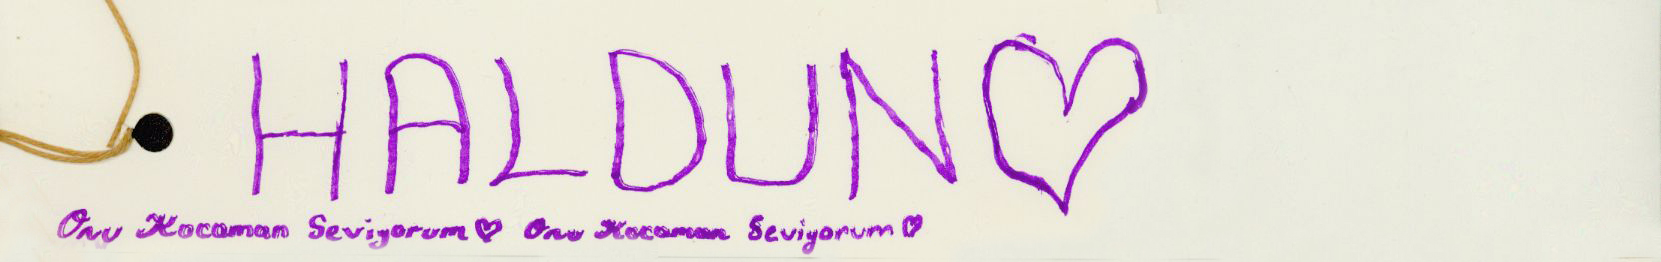 HALDUN♡
Onu Kocaman Seviyorum♡ Onu Kocaman Seviyorum♡